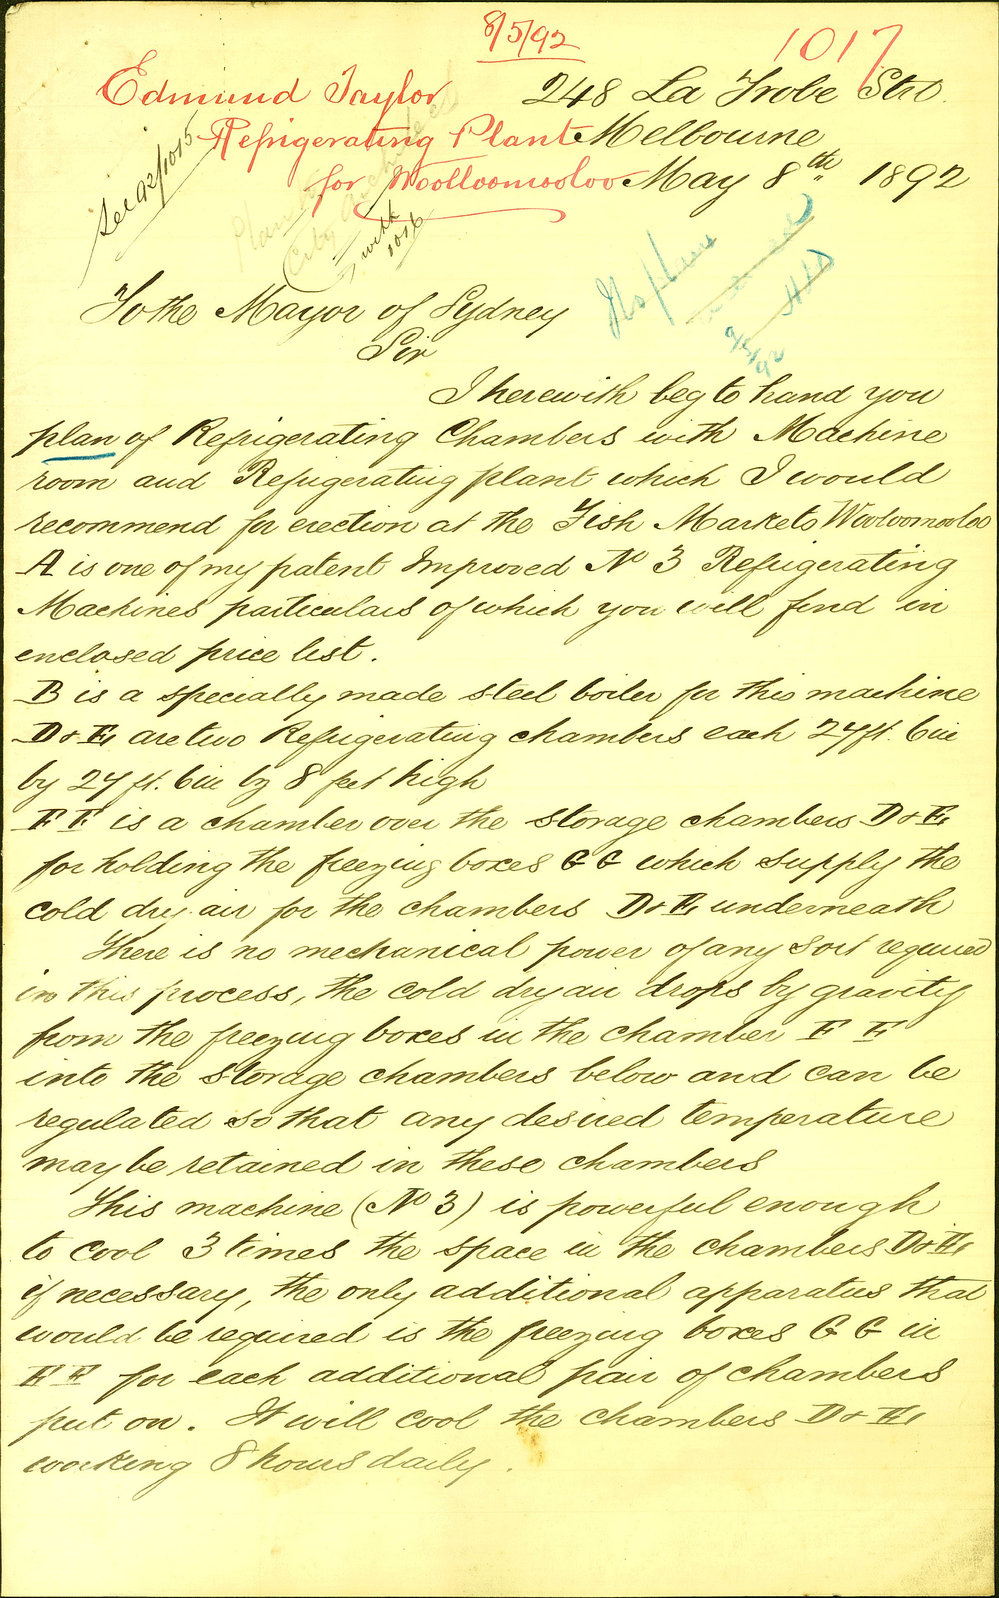 8/5/92
1017
Edmund Taylor
Refrigerating Plant
for Woolloomooloo
See 92/1015
with
1016
248 La Trobe Strt.
Melbourne
May 8th 1892
Plan
City
To the Mayor of Sydney
Sir
I herewith beg to hand you
plan of Refrigerating Chambers with Machine
room and Refrigerating plant which I would
recommend for erection at the Fish Markets Wooloomooloo
A is one of my patent Improved No 3 Refrigerating
Machines particulars of which you will find in
enclosed price list.
B is a specially made steel boiler for this machine
D & E, are two Refrigerating chambers each 27ft. 6in
by 27 ft. 6in by 8 feet high
F F is a chamber over the storage chambers D & E,
for holding the freezing boxes G G which supply the
cold dry air for the chambers D & E, underneath
There is no mechanical power of any sort required
in this process, the cold dry air drops by gravity
from the freezing boxes in the chamber F F
into the storage chambers below and can be
regulated so that any desired temperature
may be retained in these chambers
This machine (No 3) is powerful enough
to cool 3 times the space in the chambers D & E,
if necessary, the only additional apparatus that
would be required is the freezing boxes G G in
F F for each additional pair of chambers
put on. It will cool the chambers D & E,
working 8 hours daily.